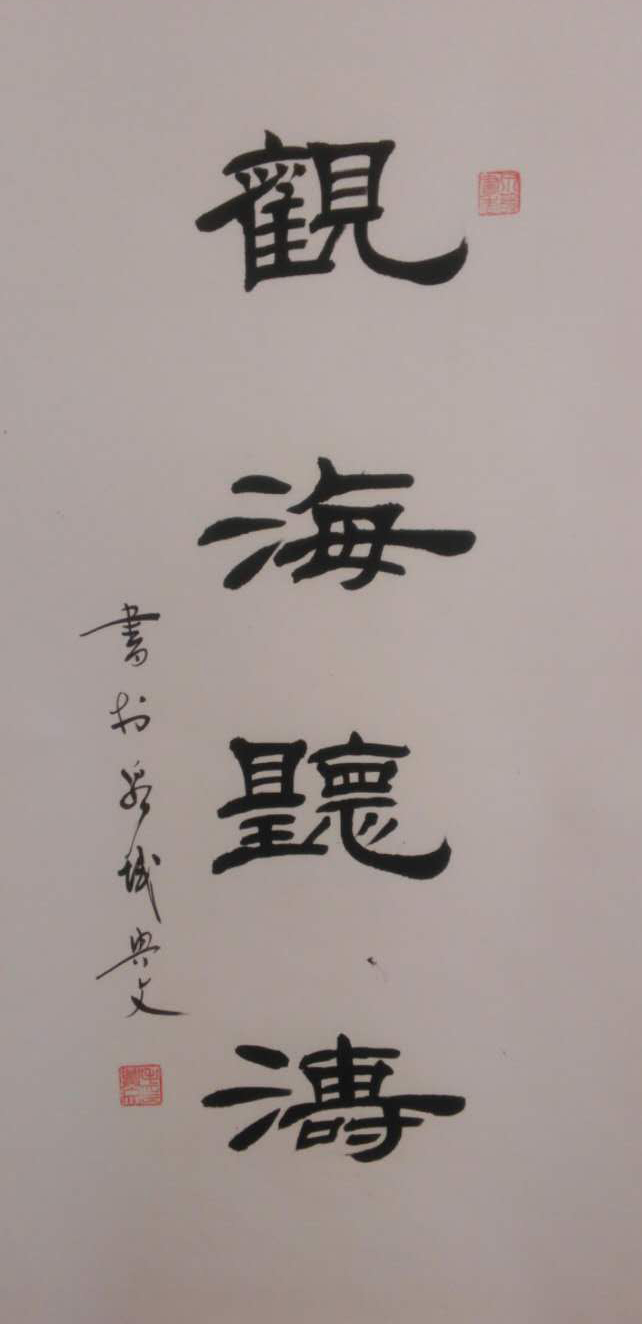 觀海聽濤
書於泉城興文